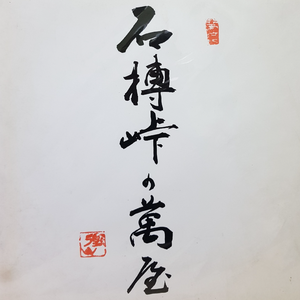 石榑峠の萬屋